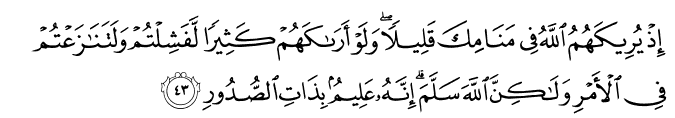 إِذْ يُرِيكَهُمُ ٱللَّهُ فِى مَنَامِكَ قَلِيلًا ۖ وَلَوْ أَرَىٰكَهُمْ كَثِيرًا لَّفَشِلْتُمْ وَلَتَنَٰزَعْتُمْ
فِى ٱلْأَمْرِ وَلَٰكِنَّ ٱللَّهَ سَلَّمَ ۗ إِنَّهُۥ عَلِيمٌۢ بِذَاتِ ٱلصُّدُورِ ٤٣